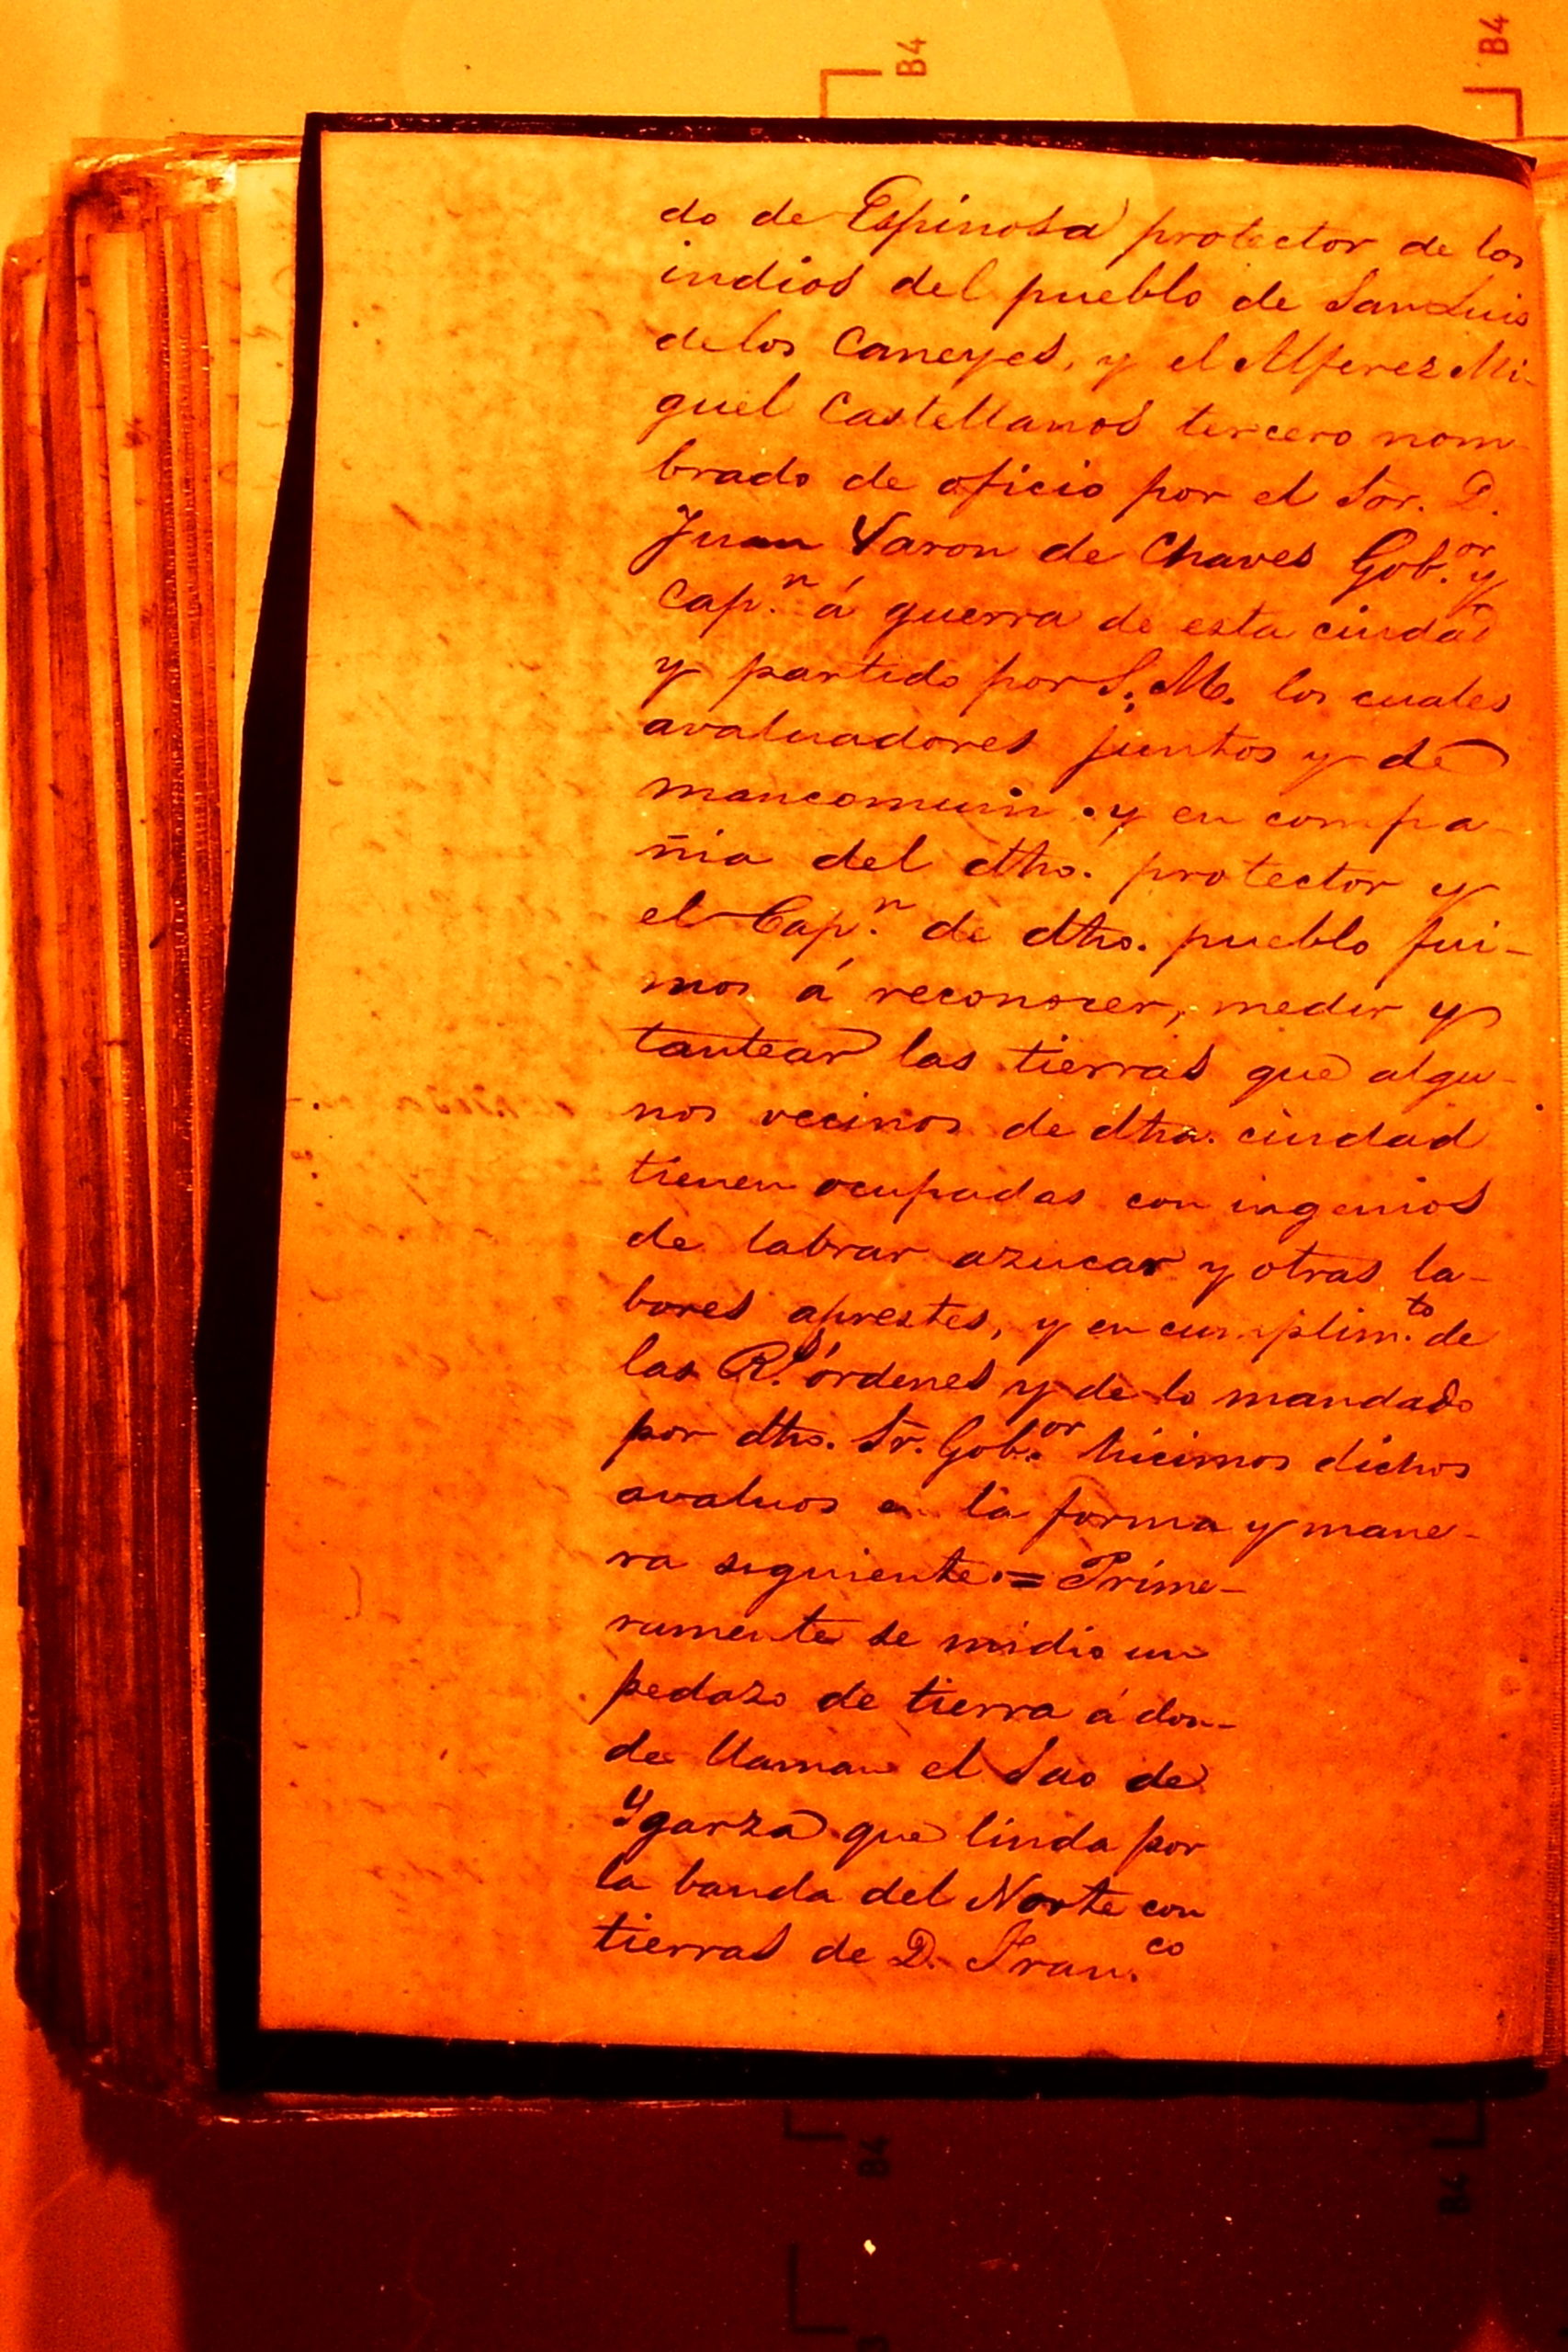 B4
B4
do de Espinosa protector de los
indios del pueblo de San Luis
de los Caneyes, y el Alferez Mi-
guel Castellanos tercero nom-
brado de oficio por el Sor. D.
Juan Varon de Chaves Gob.or y
Cap.n á guerra de esta ciudad
y partido por S. M. los cuales
avaluadores juntos y de
mancomun y en compa-
ñia del dho. protector y
el Cap.n de dho. pueblo fui-
mos á reconocer, medir y
tantear las tierras que algu-
nos vecinos de dha. ciudad
tienen ocupadas con ingenios
de labrar azucar y otras la-
bores aprestes, y en cumplim.to de
las R.s órdenes y de lo mandado
por dho. Sr. Gob.or hicimos dichos
avaluos en la forma y mane-
ra siguiente.= Prime-
ramente se midio un
pedazo de tierra á don-
de llaman el Sao de
Ygarza que linda por
la banda del Norte con
tierras de D. Fran.co
B4
B4